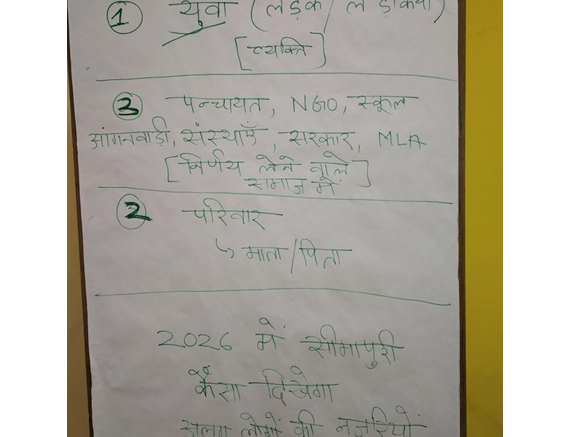 ① युवा (लड़के / लड़कियां)
[व्यक्ति]
③ पन्चायत, NGO, स्कूल
आंगनवाड़ी, संस्थाएँ, सरकार, MLA
[निर्णय लेने वाले]
समाज में
② परिवार
↳ माता/पिता
2026 में सीमापुरी
कैसा दिखेगा
अलग लोगों की नज़रियों